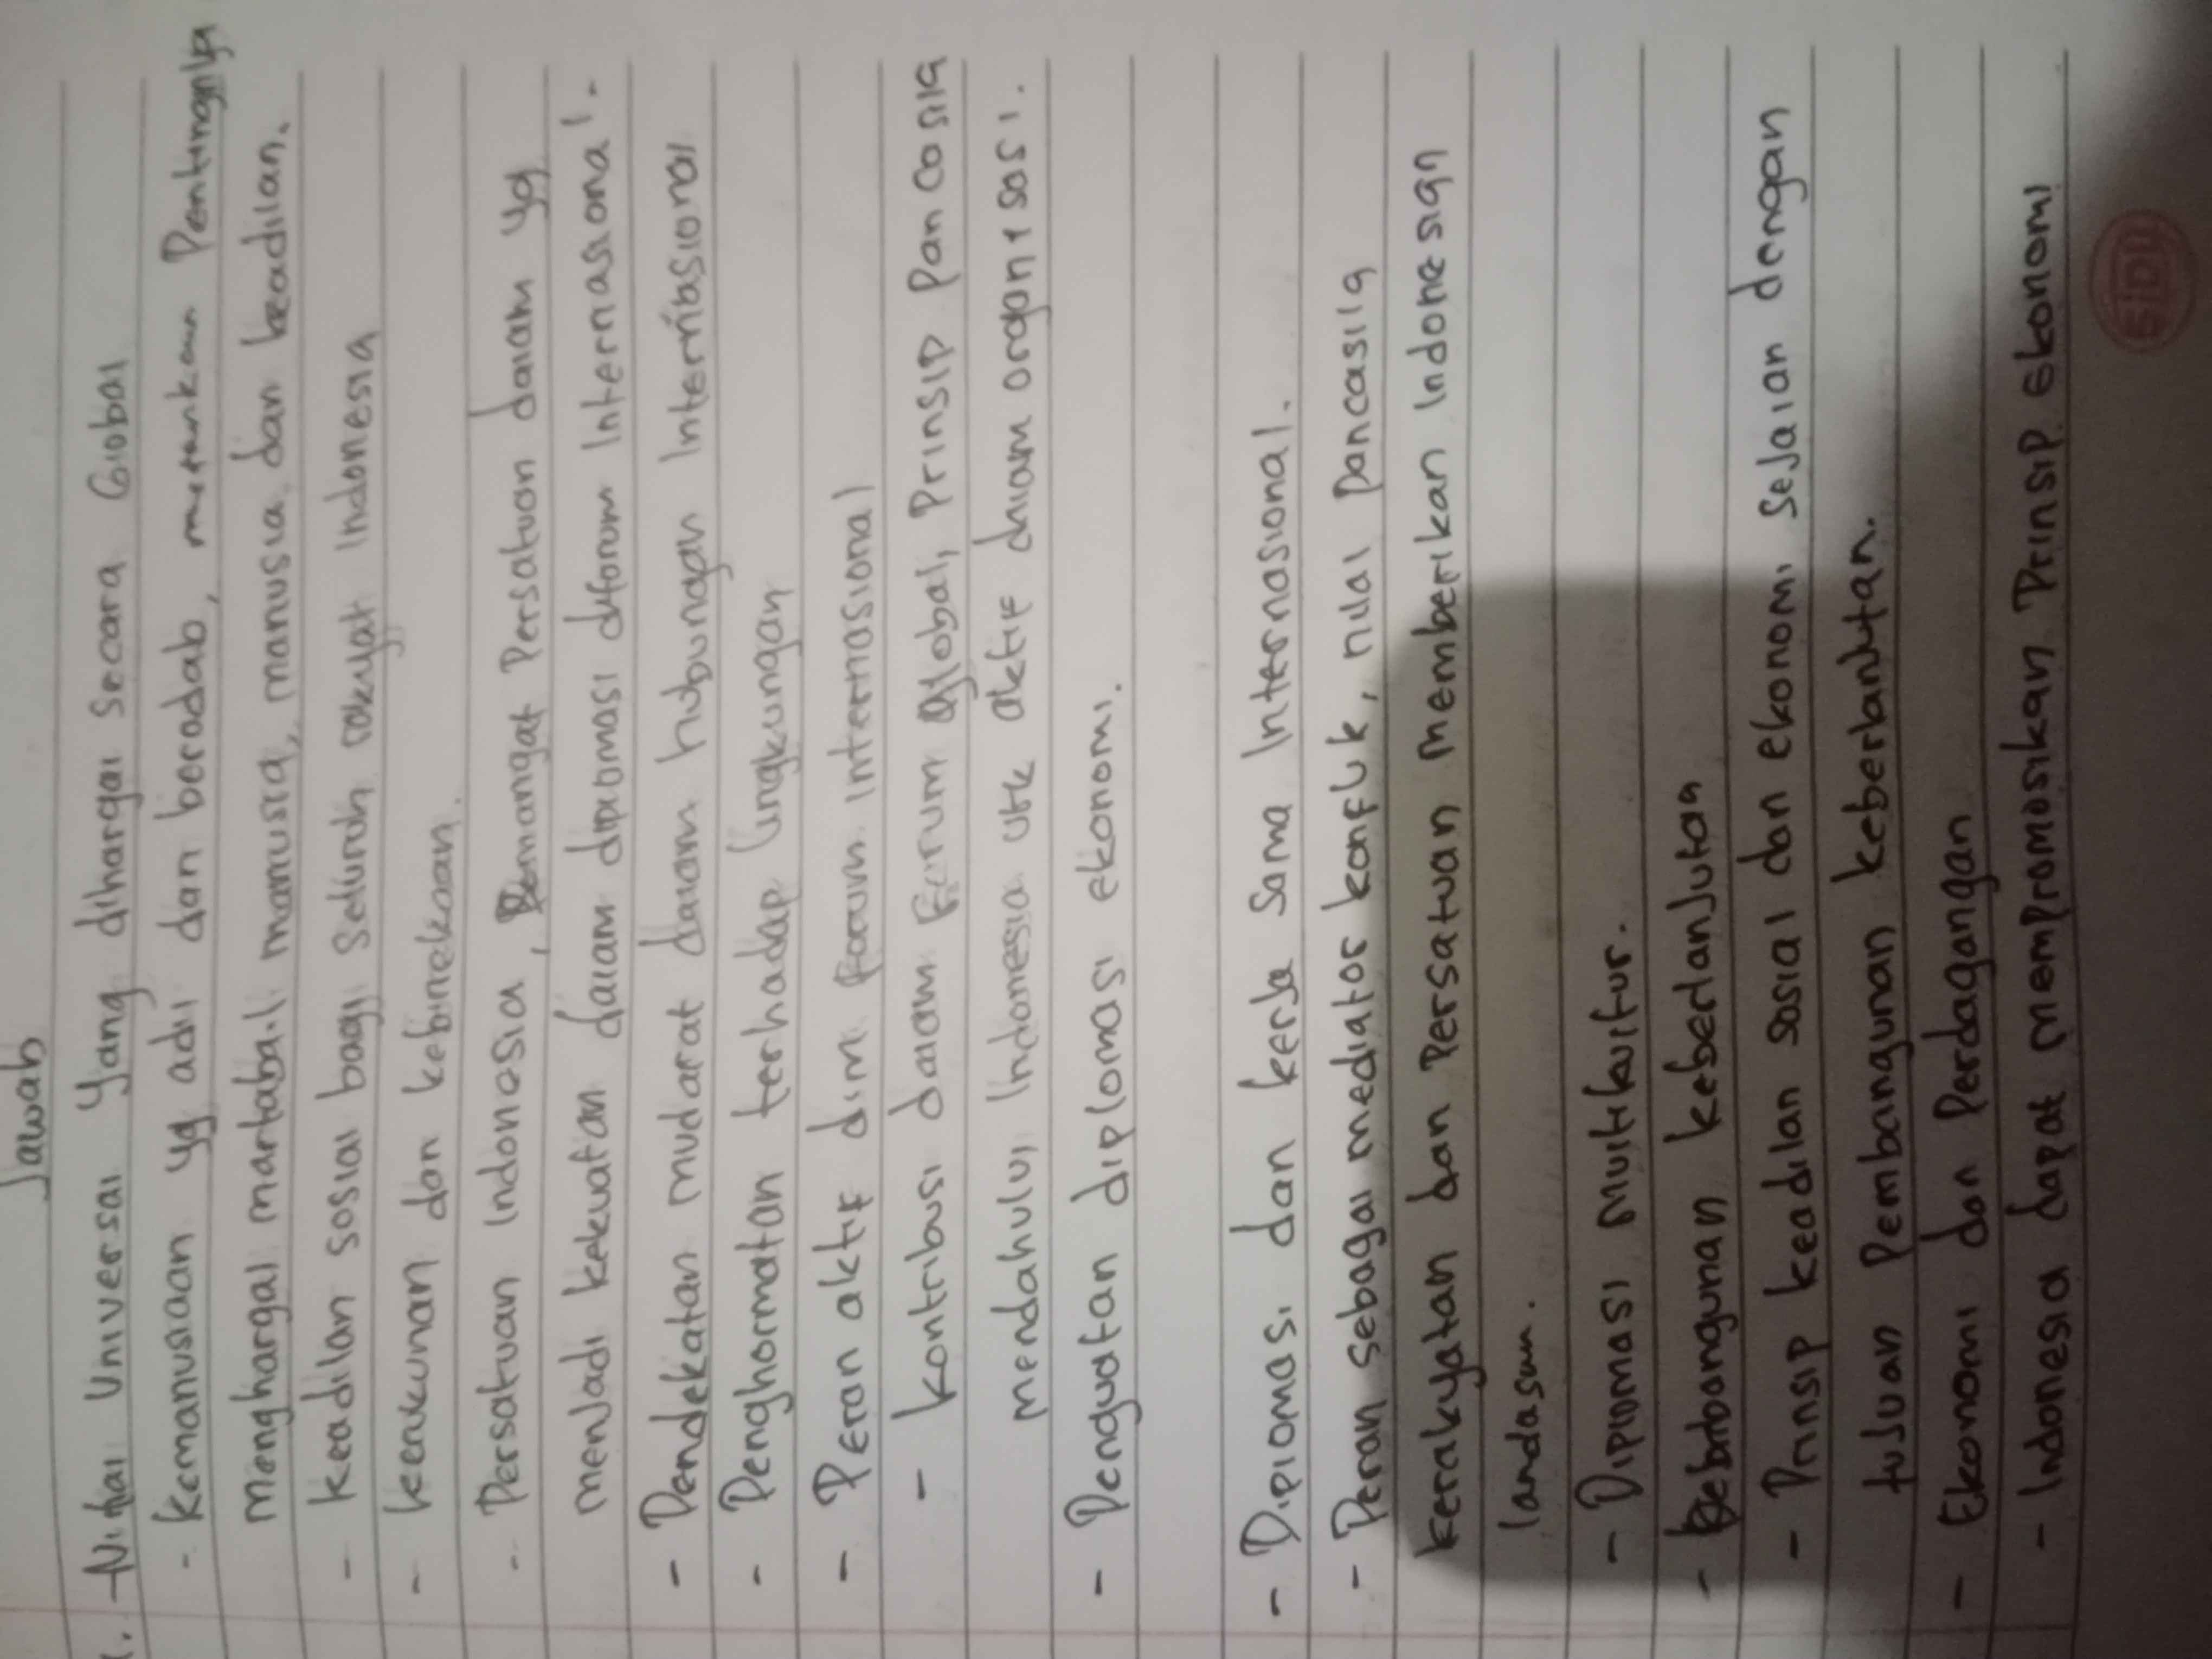 Jawab
1. Nilai Universal Yang dihargai Secara Global
- Kemanusiaan yg adil dan beradab, Pentingnya
menghargai martabat manusia, manusia dan keadilan.
- Keadilan sosial bagi seluruh rakyat Indonesia
- kerukunan dan kebinekaan.
- Persatuan Indonesia, Semangat Persatuan dalam yg
menjadi kekuatan dalam diplomasi diforum Internasional.
- Pendekatan mudarat dalam hubungan Internasional
- Penghormatan terhadap lingkungan
- Peran aktif dlm forum internasional
- kontribusi dalam Forum global, Prinsip Pancasila
mendahului Indonesia utk aktif dalam organisasi.
- Penguatan diplomasi ekonomi.
- Diplomasi dan kerja sama Internasional.
- Peran sebagai mediator konflik, nilai pancasila
kerakyatan dan Persatuan memberikan Indonesian
landasan.
- Diplomasi multikultur.
- keberlanjutan
- Prinsip keadilan sosial dan ekonomi sejalan dengan
tujuan Pembangunan keberlanjutan.
- Ekonomi dan Perdagangan
- Indonesia dapat mempromosikan Prinsip ekonomi
SIDU